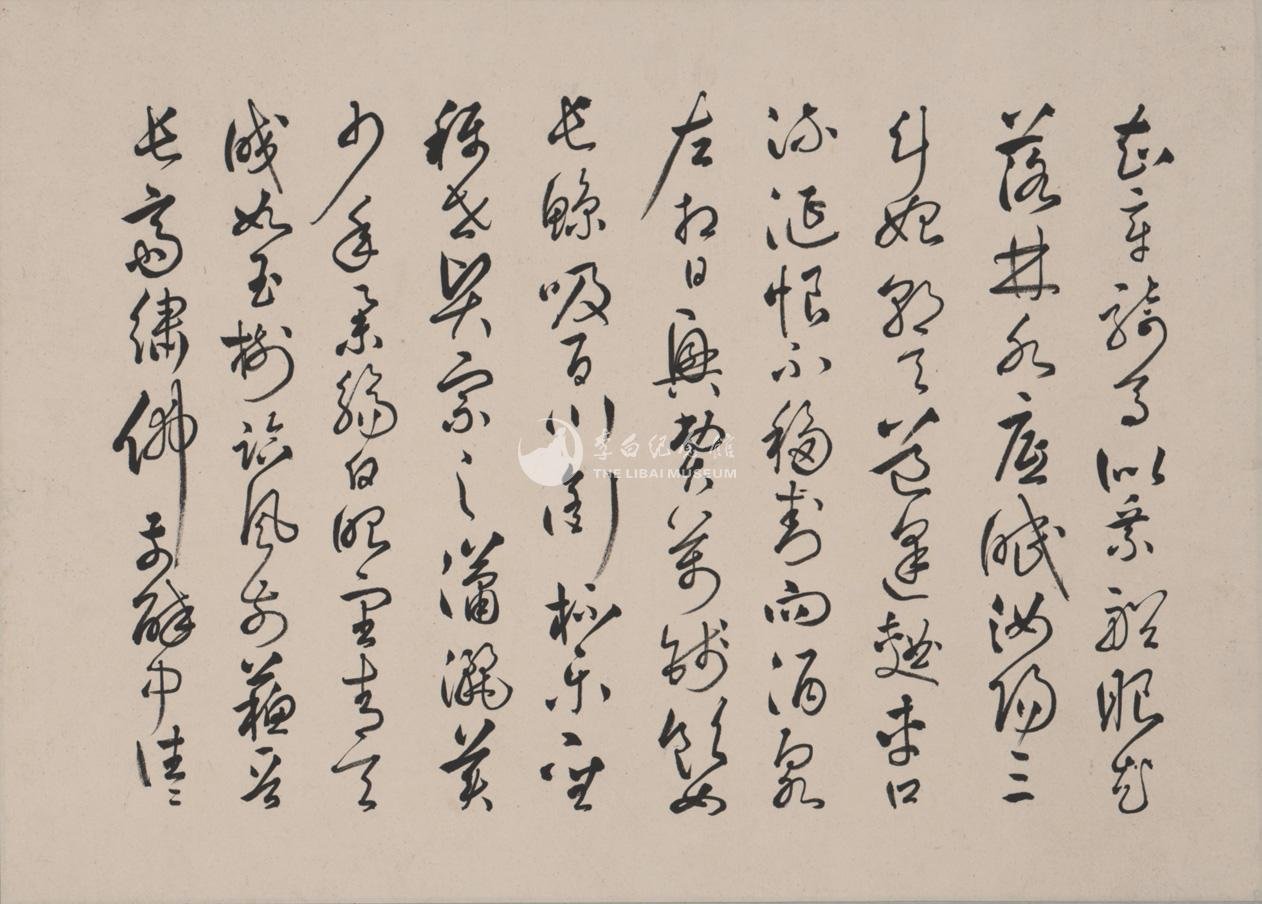 知章騎馬似乘船眼花
落井水底眠汝陽三
斗始朝天道逢麴車口
流涎恨不移封向酒泉
左相日興費萬錢飲如
長鯨吸百川銜杯樂聖
稱世賢宗之瀟灑美
少年舉觴白眼望青天
皎如玉樹臨風前蘇晉
長齋繡佛前醉中往々
李白纪念馆
THE LIBAI MUSEUM